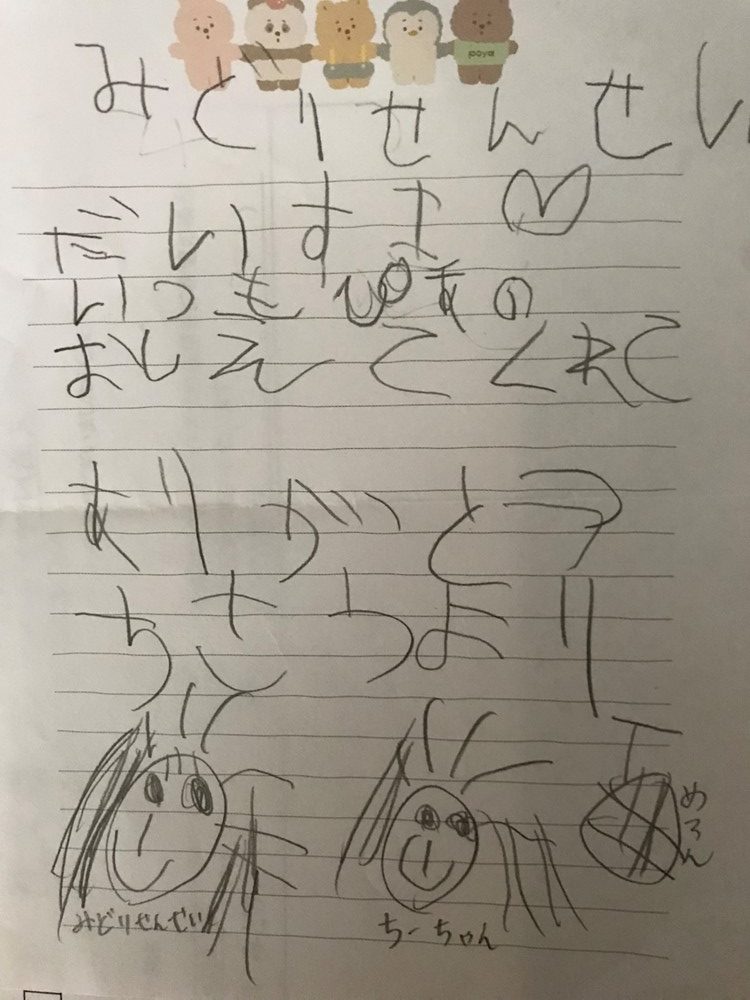 poya
みどりせんせい
だいすき
いつもぴあの
おしえてくれて
ありがとう
ちさちより
めろん
みどりせんせい
ちーちゃん